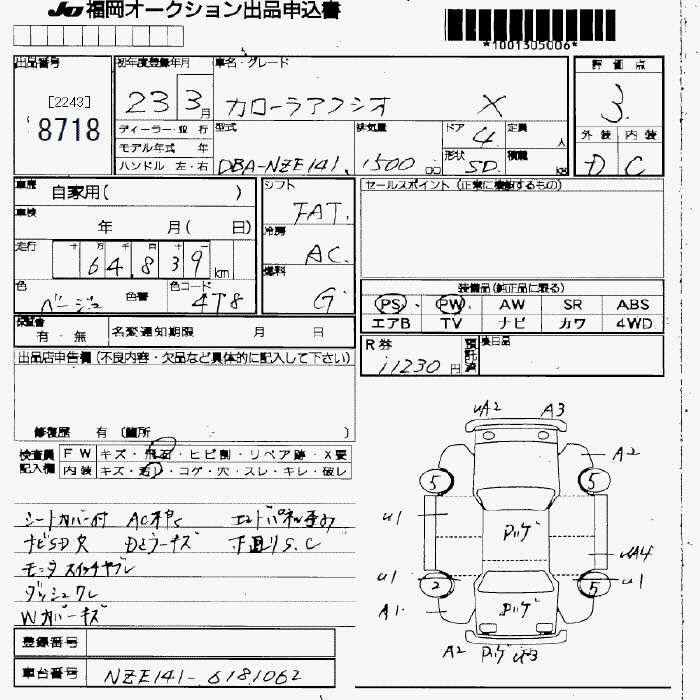 JU 福岡オークション出品申込書
*1001305006*
出品番号 初年度登録年月 車名・グレード 評価点
[2243]
8718
23 3月 カローラアクシオ X 3
ディーラー・並行 型式 排気量 ドア 4 定員 人 外装 内装
モデル年式 年
ハンドル 左・右 DBA-NZE141 1500 cc 形状 SD 積載 kg D C
車歴 自家用( ) シフト FAT セールスポイント (正常に機能するもの)
車検 年 月( 日) 冷房 AC
走行 十 万 千 百 十 km
64,839
燃料 G
色 ベージュ 色替 色コード 4T8
装備品(純正品に限る)
PS PW AW SR ABS
エアB TV ナビ カワ 4WD
保証書 有・無 名変通知期限 月 日
R券 11230円 預託済 後日品
出品店申告欄(不良内容・欠品など具体的に記入して下さい)
修復歴 有 (箇所 )
検査員記入欄 FW キズ・飛石・ヒビ割・リペア跡・X要
内装 キズ・汚レ・コゲ・穴・スレ・キレ・破レ
シートカバー付 ACオキズ エンドパネル歪み
ナビSD欠 Dミラーキズ 下廻りS.C
モニタスイッチヤブレ
ダッシュワレ
Wカバーキズ
uA2 A3
A2
5 5
u1 ルーフ uA4
u1 2 5 u1
A1
A2 u3
登録番号
車台番号 NZE141-6181062